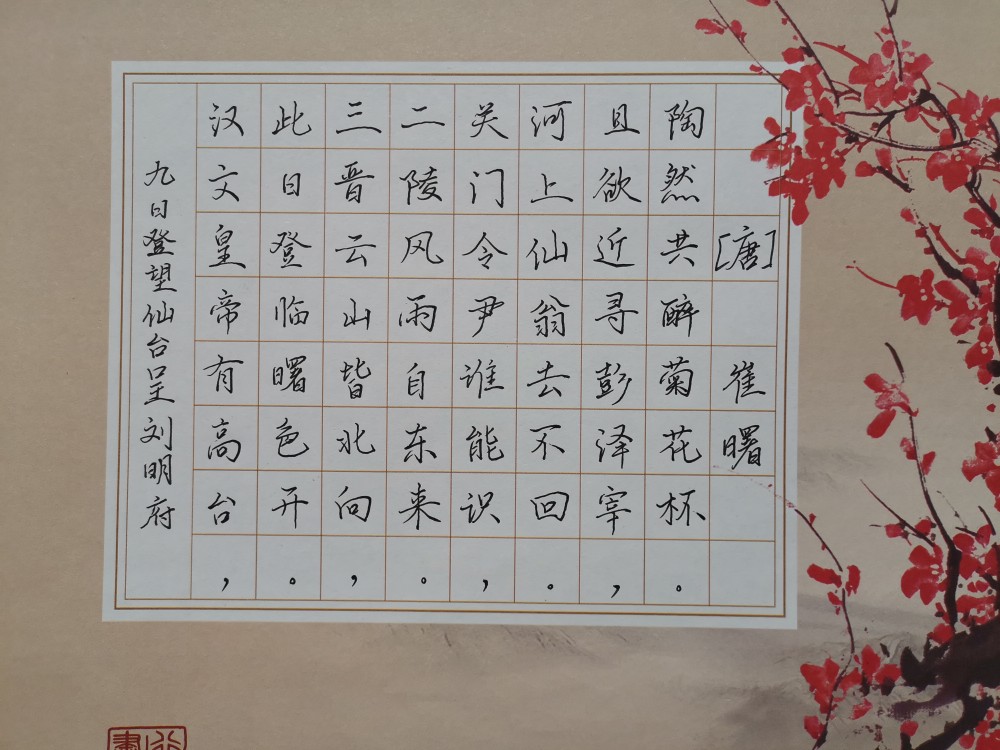 九日登望仙台呈刘明府
汉文皇帝有高台，
此日登临曙色开。
三晋云山皆北向，
二陵风雨自东来。
关门令尹谁能识，
河上仙翁去不回。
且欲近寻彭泽宰，
陶然共醉菊花杯。
[唐]崔曙